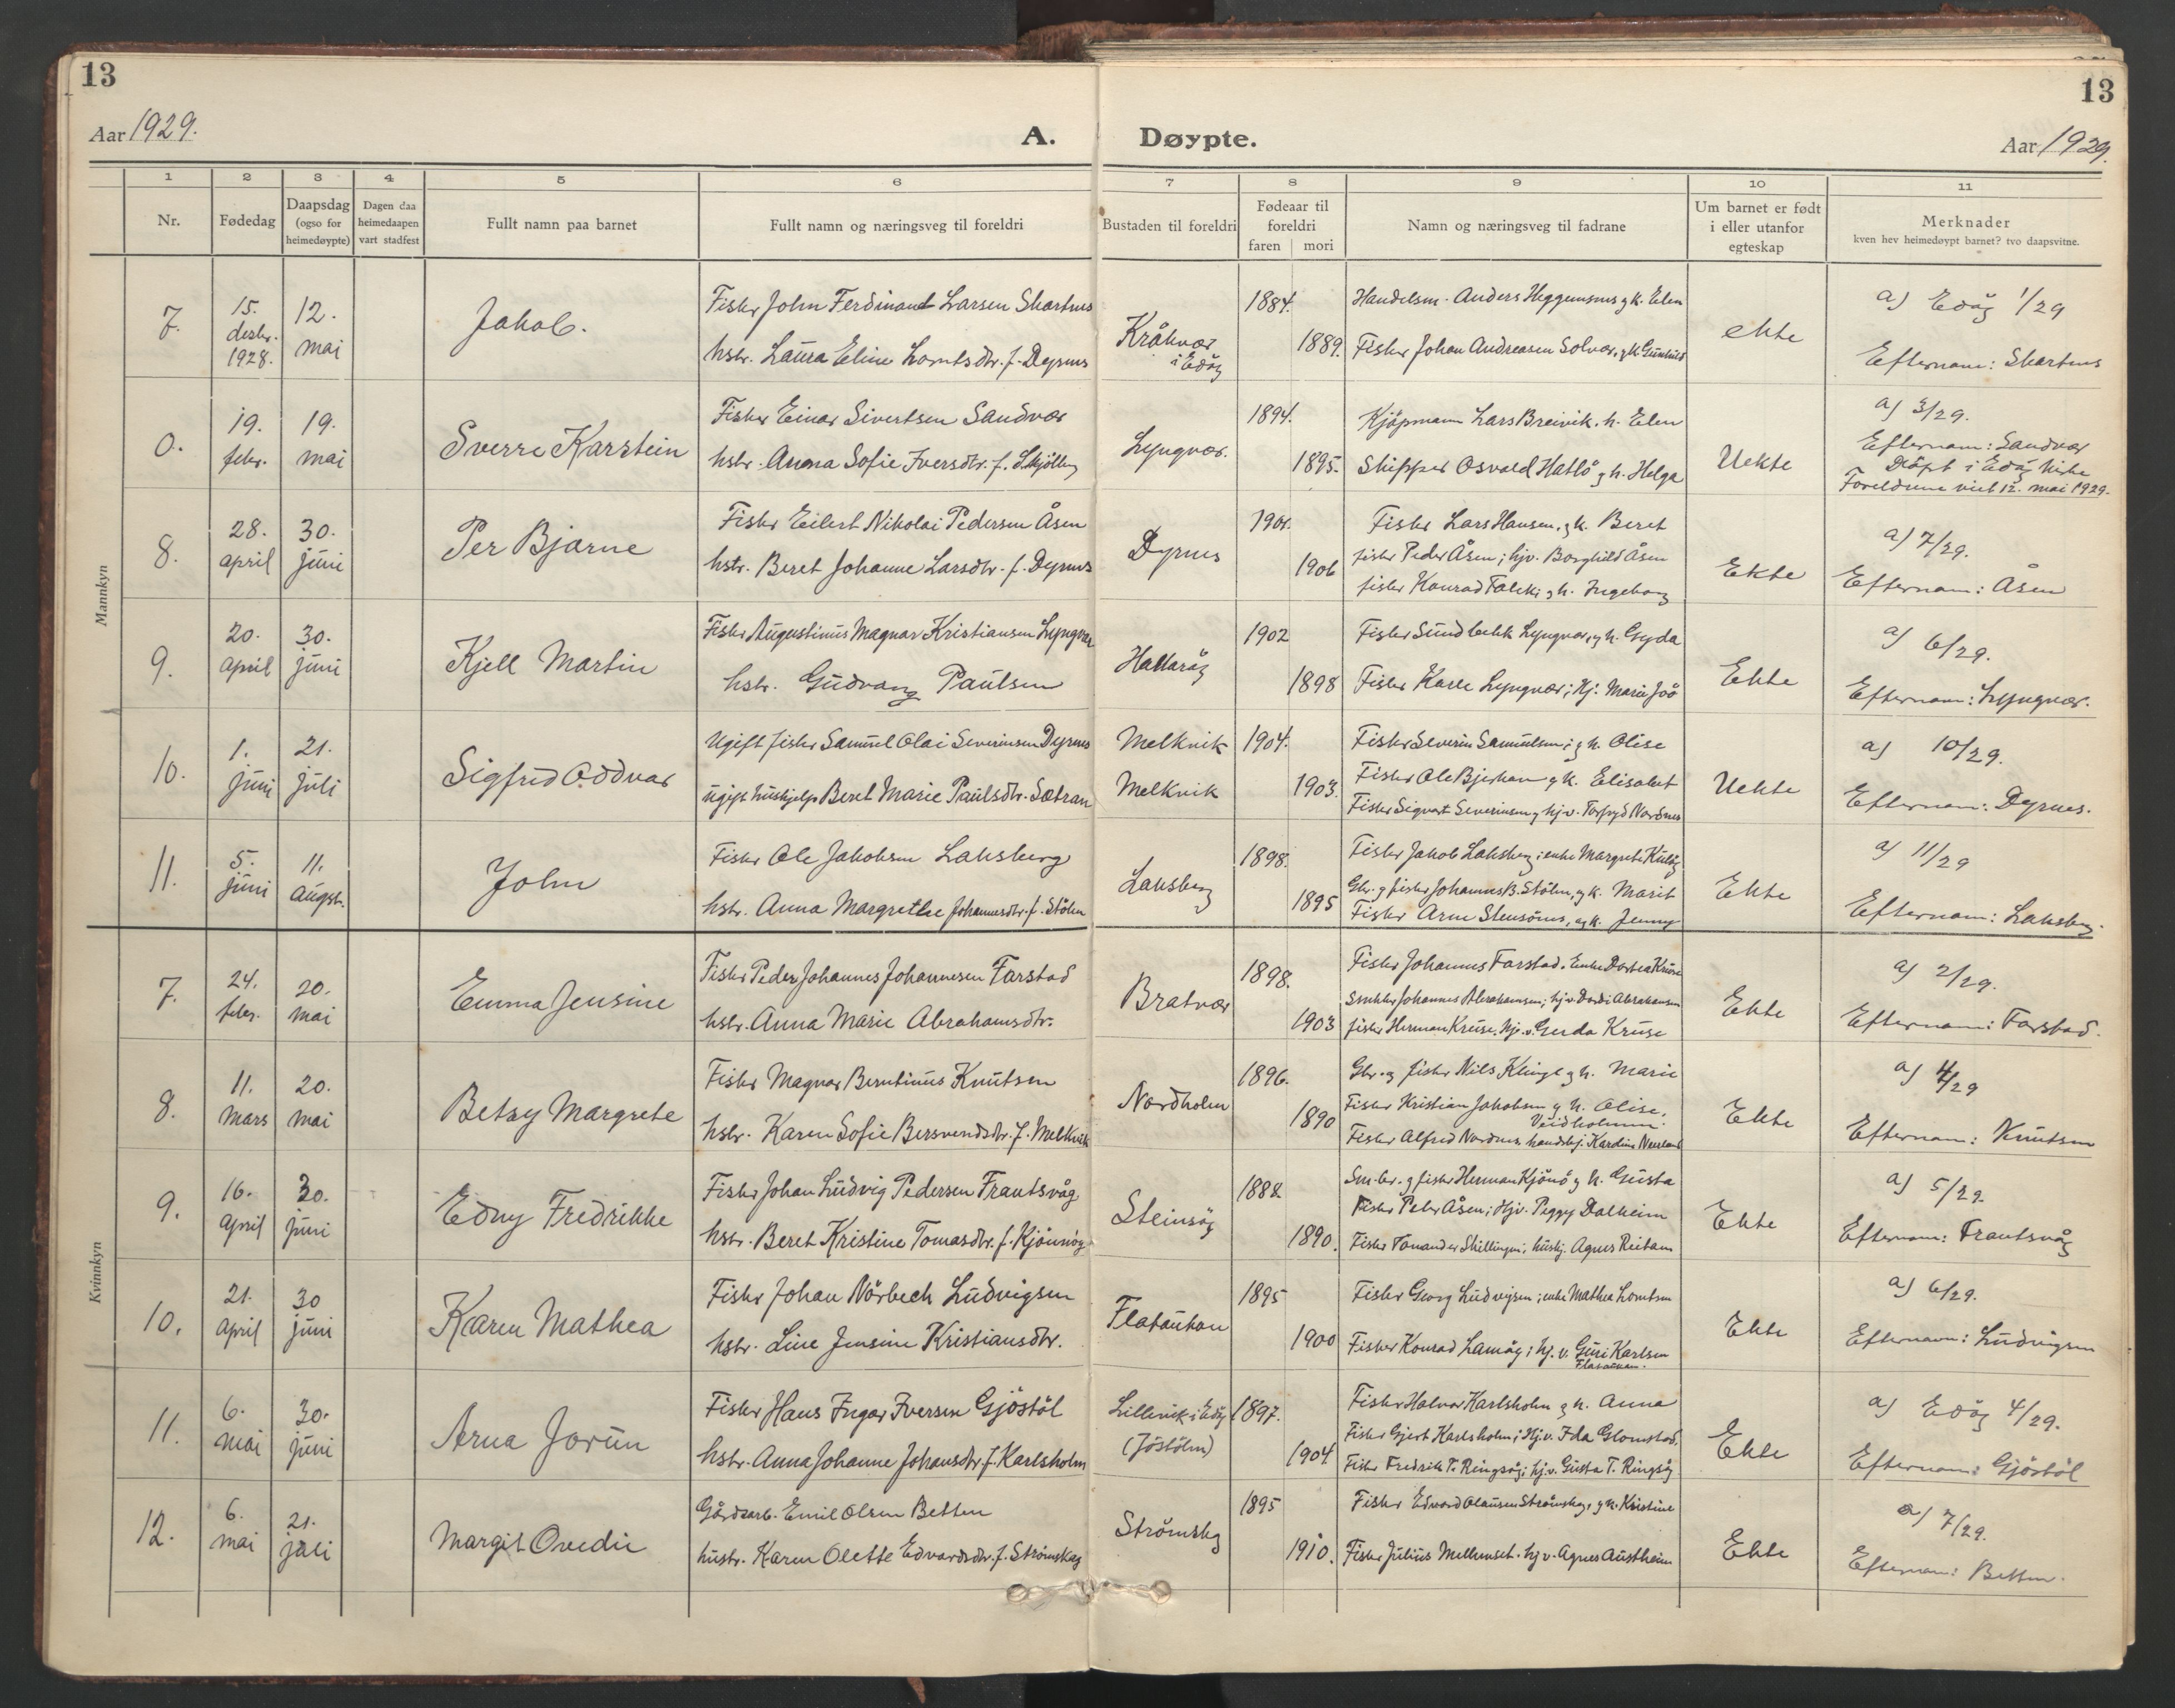 13
13
Aar 1929.
A. Døypte.
Aar 1929.
1 2 3 4 5 6 7 8 9 10 11
Nr. Fødedag Daapsdag (ogso for heimedøypte) Dagen daa heimedaapen vart stadfest Fullt namn paa barnet Fullt namn og næringsveg til foreldri Bustaden til foreldri Fødeaar til foreldri faren mori Namn og næringsveg til fadrane Um barnet er født i eller utanfor egteskap Merknader kven hev heimedøypt barnet? tvo daapsvitne.
Mannkyn
7. 15. desbr. 1928. 12. mai Jakob.
Fisker John Ferdinand Larsen Skartnes
hstr. Laura Eline Lorntsdtr. f. Dyrnes
Kråkvær i Edøy 1884. 1889.
Handelsm. Anders Heggemsnes g k. Elen
Fisker Johan Andreasen Solvær, g k. Gunhild
ekte
a) Edøy 1/29
Efternam: Skartnes
0. 19. febr. 19. mai Sverre Karstein
Fisker Einar Sivertsen Sandvær
hstr. Anna Sofie Iversdtr. f. Skjölberg
Lyngvær. 1894. 1895.
Kjöpmann Lars Breivik. k. Elen
Skipper Osvald Hatlö g k. Helga
Uekte
a) 3/29.
Efternam: Sandvær
Döpt i Edöy kirke
Foreldrene viet 12. mai 1929.
8. 28. april 30. juni Per Bjarne
Fisker Eilert Nikolai Pedersen Åsen
hstr. Beret Johanne Larsdtr. f. Dyrnes
Dyrnes 1901. 1906
Fisker Lars Hansen, g k. Beret
fisker Peder Åsen; hjv. Borghild Åsen
fisker Konrad Falck; g k. Ingeborg
Ekte
a) 7/29.
Efternam: Åsen
9. 20. april 30. juni Kjell Martin
Fisker Augustinus Magnar Kristiansen Lyngvær
hstr. Gudvang Paulsen
Hallarøy 1902 1898
Fisker Sundbekk Lyngvær, g k. Gyda
Fisker Karle Lyngvær; Hj. Marie Joö
Ekte
a) 6/29.
Efternam: Lyngvær.
10. 1. juni 21. juli Sigfred Oddvar
Ugift fisker Samuel Olai Severinsen Dyrnes
ugift huskjelp Beret Marie Paulsdtr. Sætran
Melkvik 1904.
Melkvik 1903.
Fisker Severin Samuelsen; g k. Olise
Fisker Ole Bjerkan g k. Elisabet
Fisker Sigvart Severinsen g hjv. Torfryd Nordnes
Uekte
a) 10/29.
Efternam: Dyrnes.
11. 5. juni 11. augst. John
Fisker Ole Jakobsen Laksberg
hstr. Anna Margrethe Johannesdtr. f. Stölen
Laksberg 1898. 1895
Fisker Jakob Laksberg; enke Margrete Kulöy
Gbr. g fisker Johannes B. Stölen, g k. Marit
Fisker Arne Stensönes, og k. Jenny
Ekte
a) 11/29
Efternam: Laksberg.
Kvinnkyn
7. 24. febr. 20. mai Emma Jensine
Fisker Peder Johannes Johannesen Farstad
hstr. Anna Marie Abrahamsdtr.
Bratvær 1898. 1903
Fisker Johannes Farstad. Enke Dortea Kruse
Snekker Johannes Abrahamsen; hjv. Dordi Abrahamsen
fisker Herman Kruse. hjv. Gerda Kruse
Ekte
a) 2/29.
Efternam: Farstad.
8. 11. mars 20. mai Betsy Margrete
Fisker Magnar Berntinius Knutsen
hstr. Karen Sofie Bersvendsdtr. f. Melkvik
Nordholm 1896. 1890
Gbr. og fisker Nils Klinge g k. Marie
Fisker Kristian Jakobsen g k. Olise. Veidholmen.
Fisker Alfred Nordnes. handelsj. Kardine Neerland
Ekte
a) 4/29
Efternam: Knutsen
9. 16. april 30. juni Edny Fredrikke
Fisker Johan Ludvig Pedersen Frantsvåg
hstr. Beret Kristine Tomasdtr. f. Kjönnöy
Steinsöy 1888. 1890.
Sm.br. g fisker Herman Kjönö g k. Gusta
Fisker Peter Åsen; Hjv. Peggy Dalheim
Fisker Tonander Skillingen; huskj. Agnes Reitan
Ekte
a) 5/29
Efternam: Frantsvåg
10. 21. april 30 juni Karen Mathea
Fisker Johan Nörbech Ludvigsen
hstr. Line Jensine Kristiansdtr.
Flatauken 1895 1900
Fisker Georg Ludvigsen; enke Mathea Lorntsen
Fisker Konrad Lamöy; hj. v. Guri Karlsen Flatauken.
Ekte
a) 6/29.
Efternam: Ludvigsen
11. 6. mai 30. juni Arna Jorun
Fisker Hans Ingar Iversen Gjöstöl
hstr. Anna Johanne Johansdtr. f. Karlsholm
Lillevik i Edöy (Jöstölen) 1897. 1904
Fisker Halvor Karlsholm g k. Anna
Fisker Gjert Karlsholm; Hjv. Ida Glomstad.
Fisker Fredrik T. Ringsöy; hj.v. Gusta T. Ringsöy
Ekte
a) Edöy 4/29.
Efternam: Gjöstöl
12. 6. mai 21. juli Margit Ovedie
Gårdsarb. Emil Olsen Betten
hustr. Karen Olette Edvardsdtr. f. Strömskag
Strömskg 1895 1910.
Fisker Edvard Olausen Strömskag, g k. Kristine
Fisker Julius Mellemset. hj v. Agnes Austheim
Ekte
a) 7/29.
Efternam: Betten.